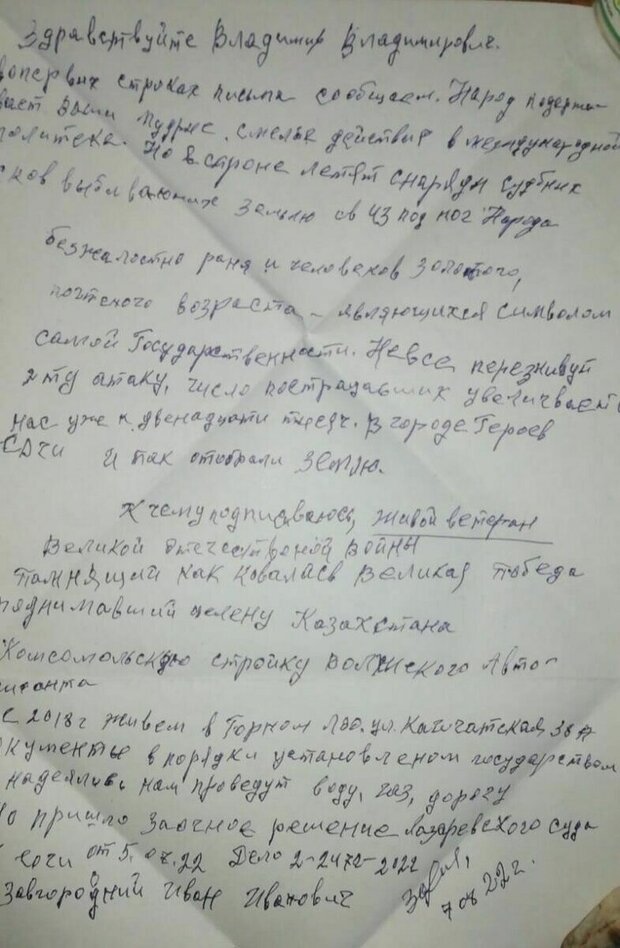 Здравствуйте Владимир Владимирович.
вопервых строках письма сообщаем. Народ подержи-
вает ваши мудрые, смелые действия в международной
политека. Но в строне летят снаряды судбник
сков выбивающих землю св из под ног Народа
безжалостно раня и человеков золотого,
почтеного возраста - являющихся символом
самой Государственности. Невсе переживут
эту атаку, число пострадавших увеличивает
нас уже к двенадцати тысяч. В городе Героев
Сочи и так отобрали землю.
К чему подписываюсь, живой ветеран
Великой отечественой войны
помнящий как ковалась Великая победа
поднимавший целену Казахстана
Комсомольскую стройку Волжского Авто-
гиганта
с 2018 г живем в Горном Лоо. ул. Камчатская 38 А
окументы в порядки установленом государством
надеялись нам проведут воду, газ, дорогу
Но пришло заочное решение Лазаревского суда
Сочи от 5.07.22 Дело 2-2472-2022
Завгородний Иван Иванович
7 08 22 г.